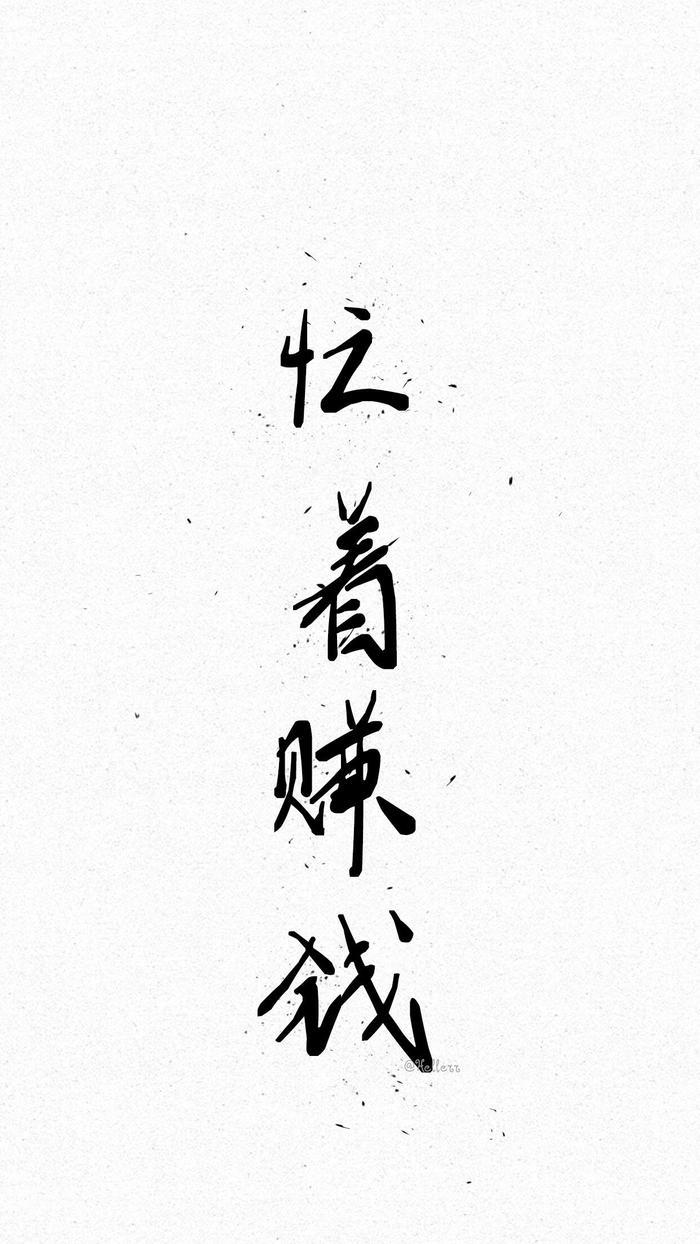 忙着赚钱
@Hellerr